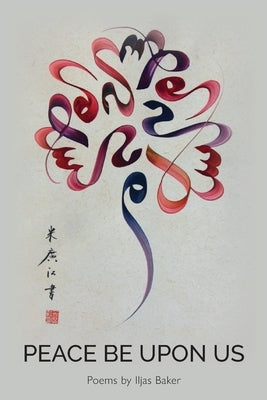 米
廣
江
書
PEACE BE UPON US
Poems by Iljas Baker